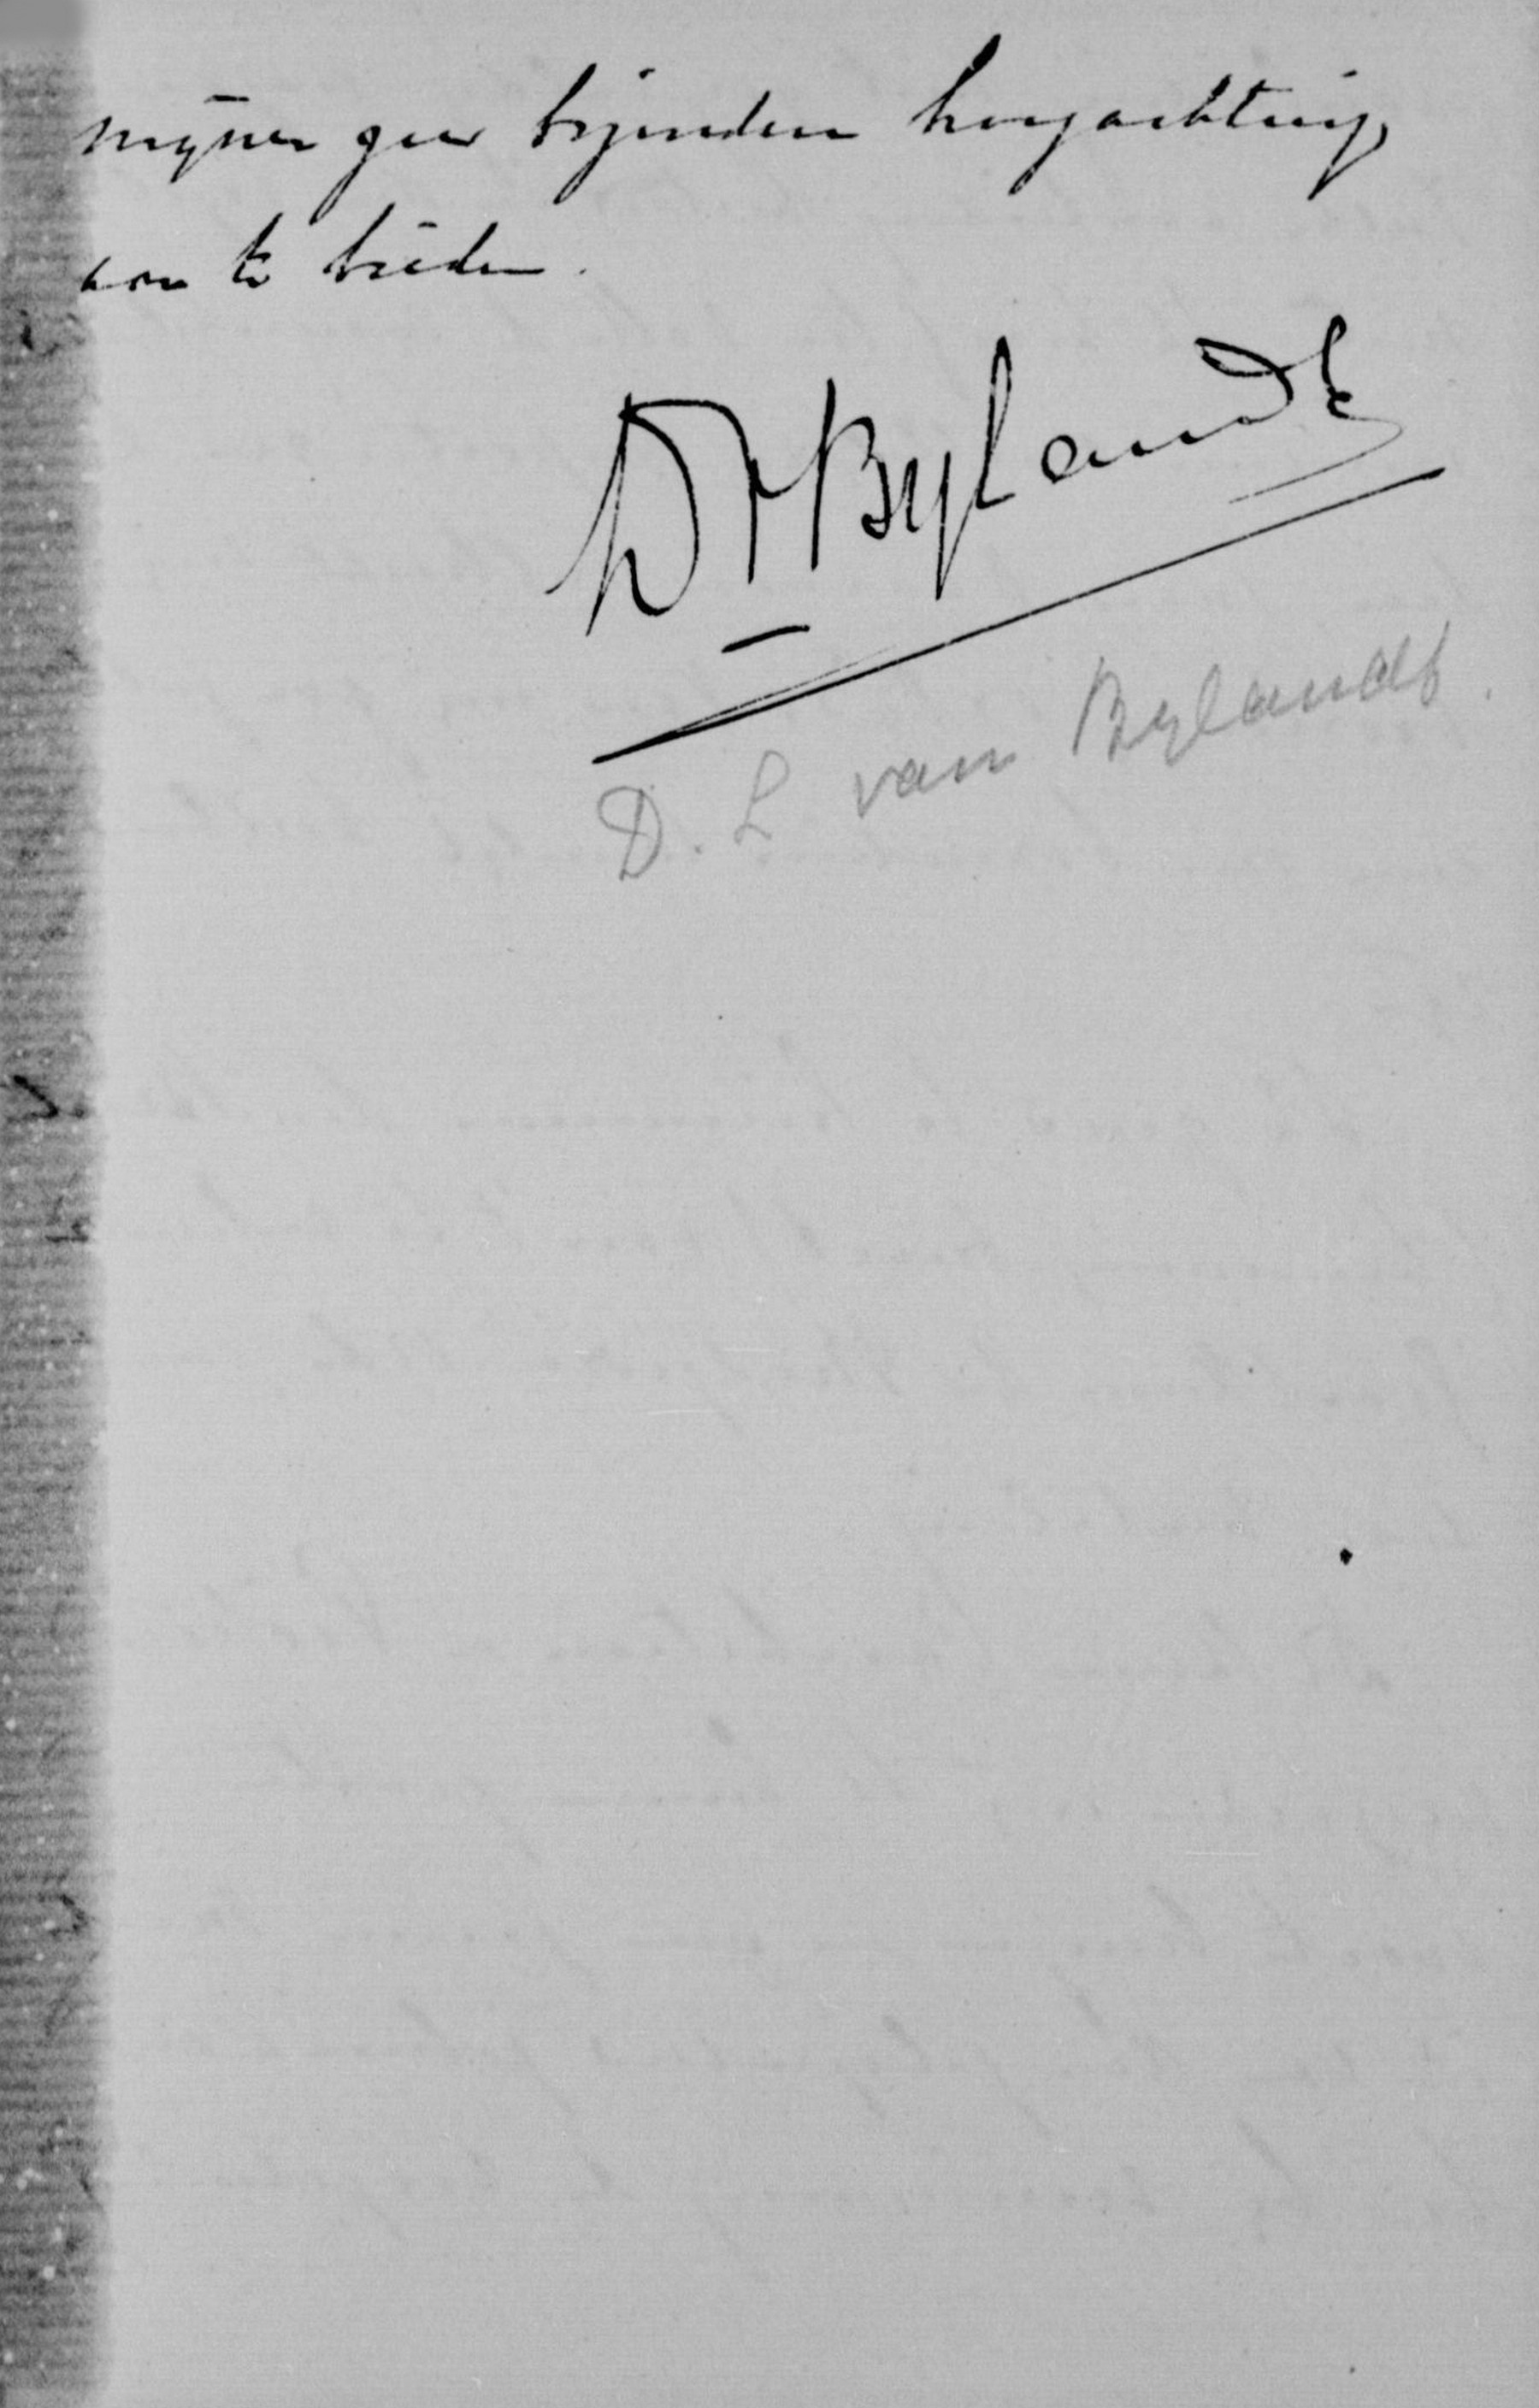 mijner zeer bijzondere hoogachting
aan te bieden.
DvBylandt
D. L van Bylandt.